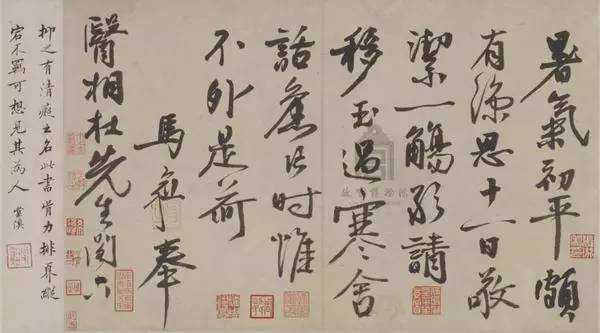 暑氣初平頗
有涼思十一日敬
潔一觴請
移玉過寒舍
話舊片时惟
不外是荷
馬愈奉
醫相杜先生閣下
抑之有清癡之名此書骨力排奡縱
宕不羈可想見其為人 溪